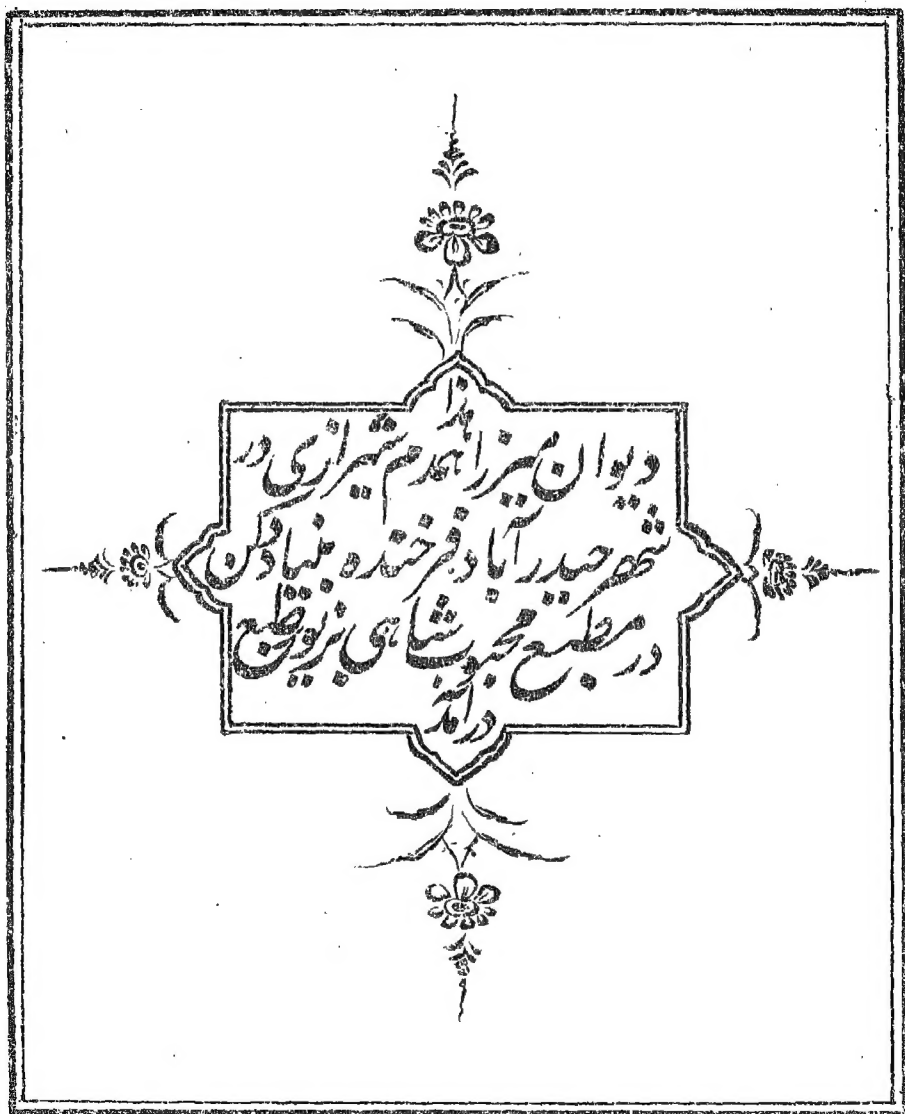 هذا
دیوان میرزا همدم شیرازی در
شهر حیدرآباد فرخنده بنیاد دکن
در مطبع محبوب شاهی بزیور طبع
درآمده